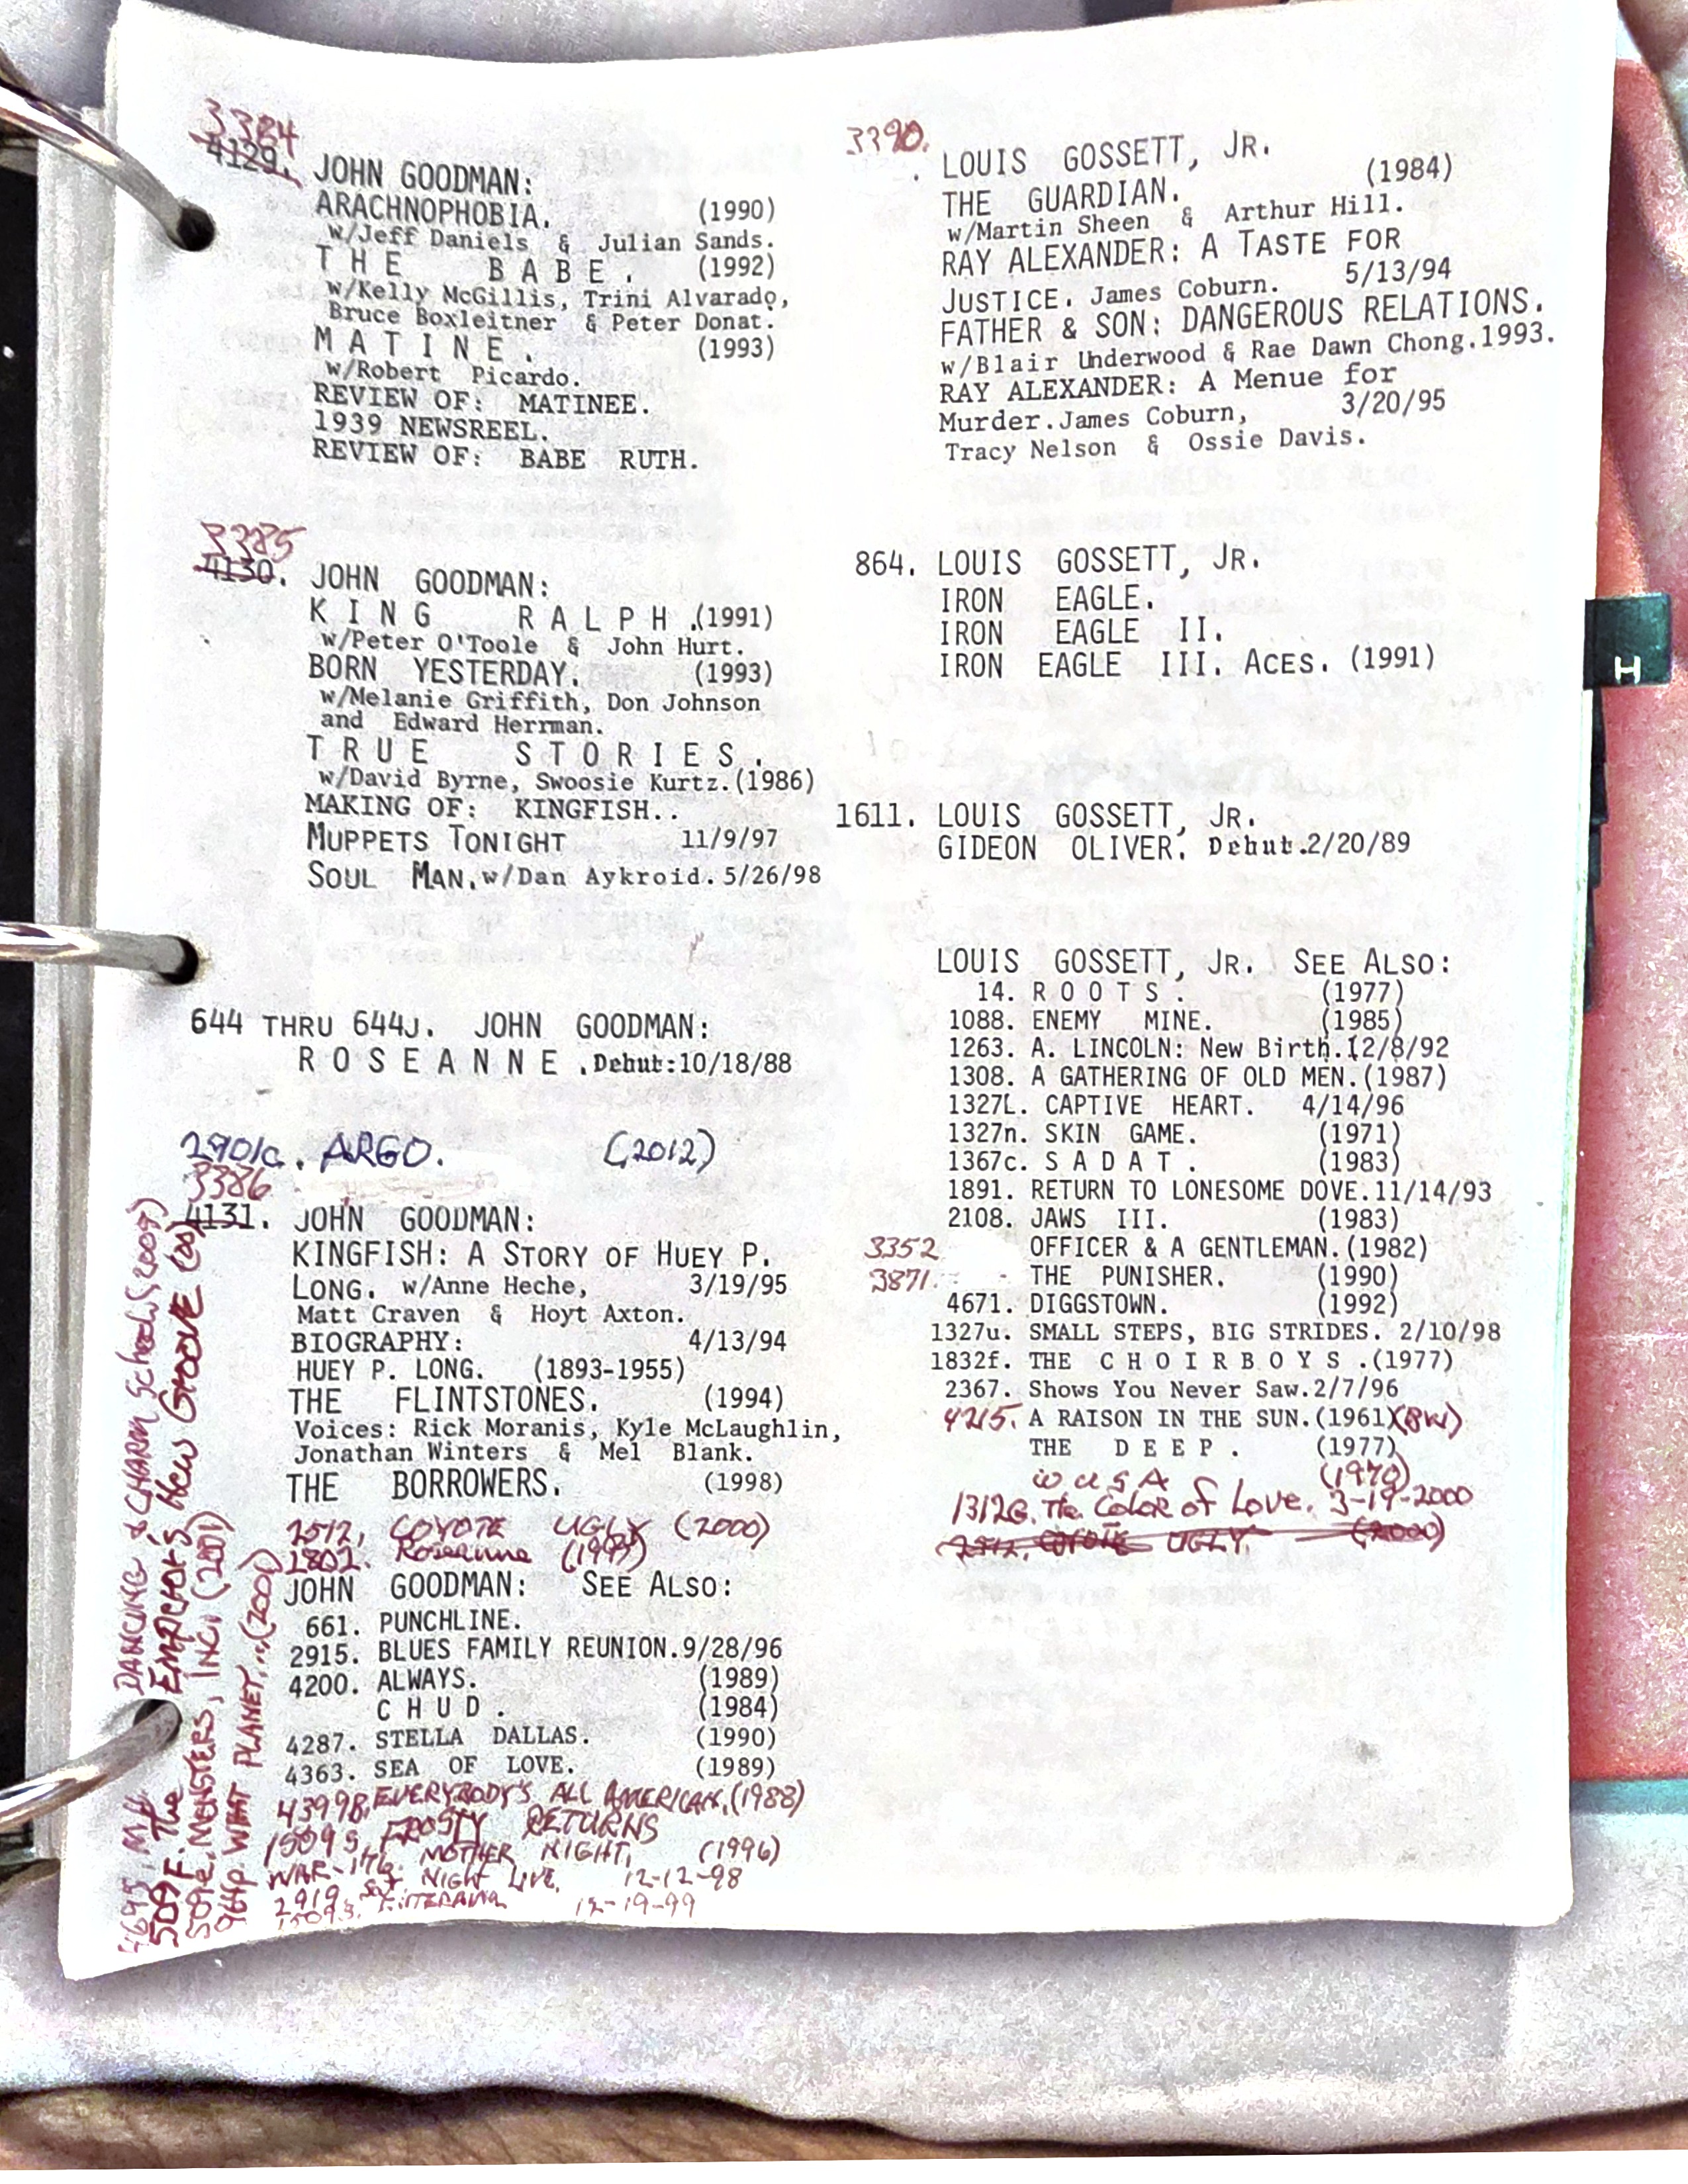 3384
4129. JOHN GOODMAN:
ARACHNOPHOBIA. (1990)
w/Jeff Daniels & Julian Sands.
T H E B A B E . (1992)
w/Kelly McGillis, Trini Alvarado,
Bruce Boxleitner & Peter Donat.
M A T I N E . (1993)
w/Robert Picardo.
REVIEW OF: MATINEE.
1939 NEWSREEL.
REVIEW OF: BABE RUTH.
3385
4130. JOHN GOODMAN:
K I N G R A L P H .(1991)
w/Peter O'Toole & John Hurt.
BORN YESTERDAY. (1993)
w/Melanie Griffith, Don Johnson
and Edward Herrman.
T R U E S T O R I E S .
w/David Byrne, Swoosie Kurtz.(1986)
MAKING OF: KINGFISH..
MUPPETS TONIGHT 11/9/97
SOUL MAN.w/Dan Aykroid. 5/26/98
644 THRU 644J. JOHN GOODMAN:
R O S E A N N E .Debut:10/18/88
2901c. ARGO. (2012)
3386
4131. JOHN GOODMAN:
KINGFISH: A STORY OF HUEY P.
LONG. w/Anne Heche, 3/19/95
Matt Craven & Hoyt Axton.
BIOGRAPHY: 4/13/94
HUEY P. LONG. (1893-1955)
THE FLINTSTONES. (1994)
Voices: Rick Moranis, Kyle McLaughlin,
Jonathan Winters & Mel Blank.
THE BORROWERS. (1998)
2512. COYOTE UGLY (2000)
1802. Roseanne
JOHN GOODMAN: SEE ALSO:
661. PUNCHLINE.
2915. BLUES FAMILY REUNION.9/28/96
4200. ALWAYS. (1989)
C H U D . (1984)
4287. STELLA DALLAS. (1990)
4363. SEA OF LOVE. (1989)
4399B. EVERYBODY'S ALL AMERICAN. (1988)
1509s. FROSTY RETURNS
WAR-17b. MOTHER NIGHT. (1996)
2919. Sat NIGHT LIVE. 12-12-98
12-19-99
DANCING & CHARM School (2005)
509F. The EMPEROR'S New GROOVE (00)
509e. MONSTERS, INC. (2001)
964p. WHAT PLANET... (2000)
3390.
LOUIS GOSSETT, JR.
THE GUARDIAN. (1984)
w/Martin Sheen & Arthur Hill.
RAY ALEXANDER: A TASTE FOR
JUSTICE. James Coburn. 5/13/94
FATHER & SON: DANGEROUS RELATIONS.
w/Blair Underwood & Rae Dawn Chong.1993.
RAY ALEXANDER: A Menue for
Murder.James Coburn, 3/20/95
Tracy Nelson & Ossie Davis.
864. LOUIS GOSSETT, JR.
IRON EAGLE.
IRON EAGLE II.
IRON EAGLE III. ACES. (1991)
1611. LOUIS GOSSETT, JR.
GIDEON OLIVER. Debut.2/20/89
LOUIS GOSSETT, JR. SEE ALSO:
14. R O O T S . (1977)
1088. ENEMY MINE. (1985)
1263. A. LINCOLN: New Birth.12/8/92
1308. A GATHERING OF OLD MEN.(1987)
1327L. CAPTIVE HEART. 4/14/96
1327n. SKIN GAME. (1971)
1367c. S A D A T . (1983)
1891. RETURN TO LONESOME DOVE.11/14/93
2108. JAWS III. (1983)
3352 OFFICER & A GENTLEMAN.(1982)
3871. THE PUNISHER. (1990)
4671. DIGGSTOWN. (1992)
1327u. SMALL STEPS, BIG STRIDES. 2/10/98
1832f. THE C H O I R B O Y S .(1977)
2367. Shows You Never Saw.2/7/96
4215. A RAISON IN THE SUN.(1961)(BW)
THE D E E P . (1977)
W U S A (1970)
1312G. The Color of Love. 3-19-2000
2512. COYOTE UGLY. (2000)
H